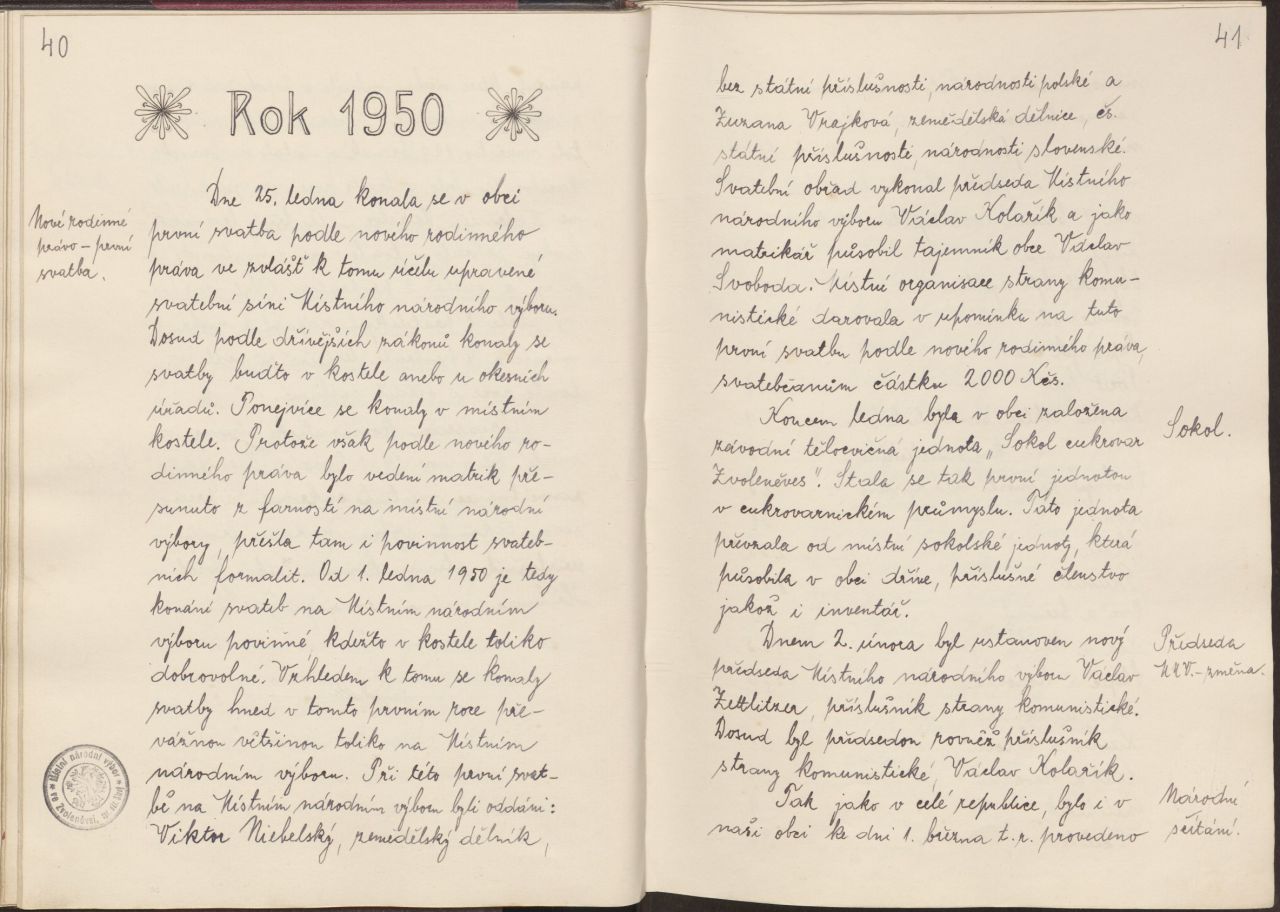 40
Rok 1950
Nové rodinné
právo – první
svatba.
Dne 25. ledna konala se v obci
první svatba podle nového rodinného
práva ve zvlášť k tomu účelu upravené
svatební síni Místního národního výboru.
Dosud podle dřívějších zákonů konaly se
svatby buďto v kostele anebo u okesních
úřadů. Ponejvíce se konaly v místním
kostele. Protože však podle nového ro-
dinného práva bylo vedení matrik pře-
sunuto z farností na místní národní
výbory, přešla tam i povinnost svateb-
ních formalit. Od 1. ledna 1950 je tedy
konání svateb na Místním národním
výboru povinné, kdežto v kostele toliko
dobrovolné. Vzhledem k tomu se konaly
svatby hned v tomto prvním roce pře-
vážnou většinou toliko na Místním
národním výboru. Při této první svat-
bě na Místním národním výboru byli oddáni:
Viktor Niebelský, zemědělský dělník,
Místní národní výbor
ve Zvoleněvsi
41
bez státní příslušnosti, národnosti polské a
Zuzana Vrajková, zemědělská dělnice, čs.
státní příslušnosti, národnosti slovenské.
Svatební obřad vykonal předseda Místního
národního výboru Václav Kolařík a jako
matrikář působil tajemník obce Václav
Svoboda. Místní organisace strany komu-
nistické darovala v upomínku na tuto
první svatbu podle nového rodinného práva,
svatebčanům částku 2000 Kčs.
Koncem ledna byla v obci založena
závodní tělocvičná jednota „Sokol cukrovar
Zvoleněves". Stala se tak první jednotou
v cukrovarnickém průmyslu. Tato jednota
převzala od místní sokolské jednoty, která
působila v obci dříve, příslušné členstvo
jakož i inventář.
Sokol.
Dnem 2. února byl ustanoven nový
předseda Místního národního výboru Václav
Zettlitzer, příslušník strany komunistické.
Dosud byl předsedou rovněž příslušník
strany komunistické, Václav Kolařík.
Předseda
M.N.V. – změna.
Tak jako v celé republice, bylo i v
naší obci ke dni 1. března t.r. provedeno
Národní
sčítání.